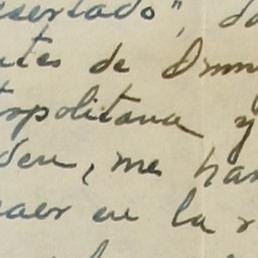 sertado", da
ntes de Dom
tropolitana y
den, me han
aer en la r